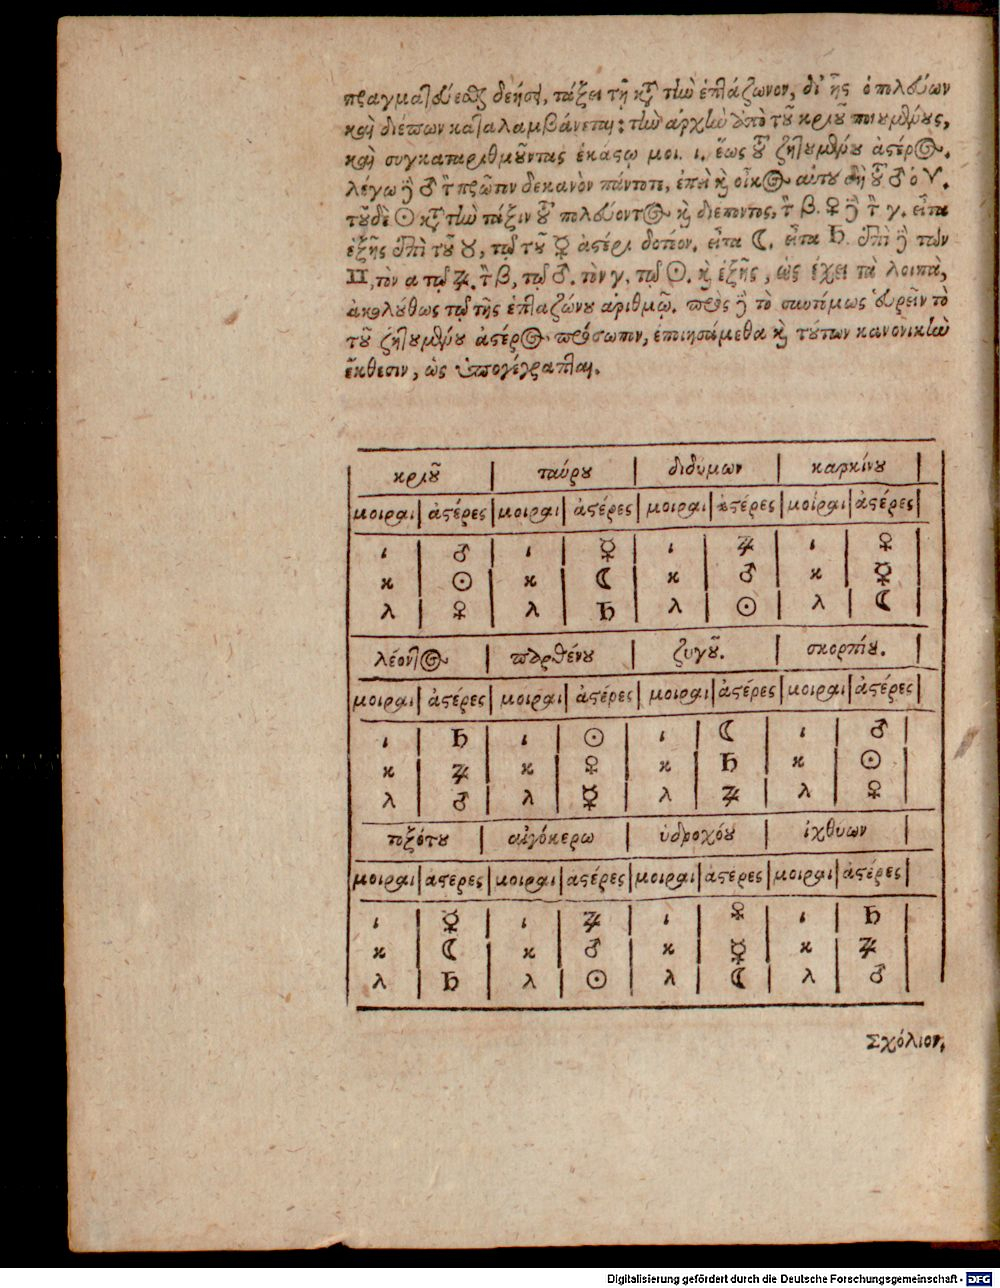 πραγματεύεσθαι δεήσει, τάξει τῇ κατὰ τὴν ἑπτάζωνον, δι' ἧς ὁ πολεύων
καὶ διέπων καταλαμβάνεται: τὴν ἀρχὴν ἀπὸ τοῦ κριοῦ ποιουμένους,
καὶ συγκαταριθμοῦντας ἑκάστῳ μοι. ι. ἕως τοῦ ζητουμένου ἀστέρος.
λέγω δὲ ♂ τὸν πρῶτον δεκανὸν πάντοτε, ἐπεὶ καὶ οἶκος αὐτοῦ δὴ τοῦ ♂ ὁ ♈.
τοῦ δὲ ☉ κατὰ τὴν τάξιν τοῦ πολεύοντος καὶ διέποντος, τὸν β. ♀ δὲ τὸν γ. εἶτα
ἑξῆς ἐπὶ τοῦ ♉, τῷ τοῦ ☿ ἀστέρι δοτέον. εἶτα ☾. εἶτα ♄. ἐπὶ δὲ τῶν
♊, τὸν α τῷ ♃. τὸν β, τῷ ♂. τὸν γ. τῷ ☉. καὶ ἑξῆς, ὡς ἔχει τὰ λοιπὰ,
ἀκολούθως τῷ τῆς ἑπταζώνου ἀριθμῷ. πρὸς δὲ τὸ συντόμως εὑρεῖν τὸ
τοῦ ζητουμένου ἀστέρος πρόσωπον, ἐποιησάμεθα καὶ τούτων κανονικὴν
ἔκθεσιν, ὡς ὑπογέγραπται.
κριοῦ ταύρου διδύμων καρκίνου
μοιραι ἀστέρες μοιραι ἀστέρες μοιραι ἀστέρες μοίραι ἀστέρες
ι ♂ ι ☿ ι ♃ ι ♀
κ ☉ κ ☾ κ ♂ κ ☿
λ ♀ λ ♄ λ ☉ λ ☾
λέοντος παρθένου ζυγοῦ. σκορπίου.
μοιραι ἀστέρες μοιραι ἀστέρες μοιραι ἀστέρες μοιραι ἀστέρες
ι ♄ ι ☉ ι ☾ ι ♂
κ ♃ κ ♀ κ ♄ κ ☉
λ ♂ λ ☿ λ ♃ λ ♀
τοξότου αἰγόκερω ὑδροχόου ἰχθύων
μοιραι ἀστερες μοιραι ἀστέρες μοιραι ἀστέρες μοιραι ἀστέρες
ι ☿ ι ♃ ι ♀ ι ♄
κ ☾ κ ♂ κ ☿ κ ♃
λ ♄ λ ☉ λ ☾ λ ♂
Σχόλιον,
Digitalisierung gefördert durch die Deutsche Forschungsgemeinschaft - DFG